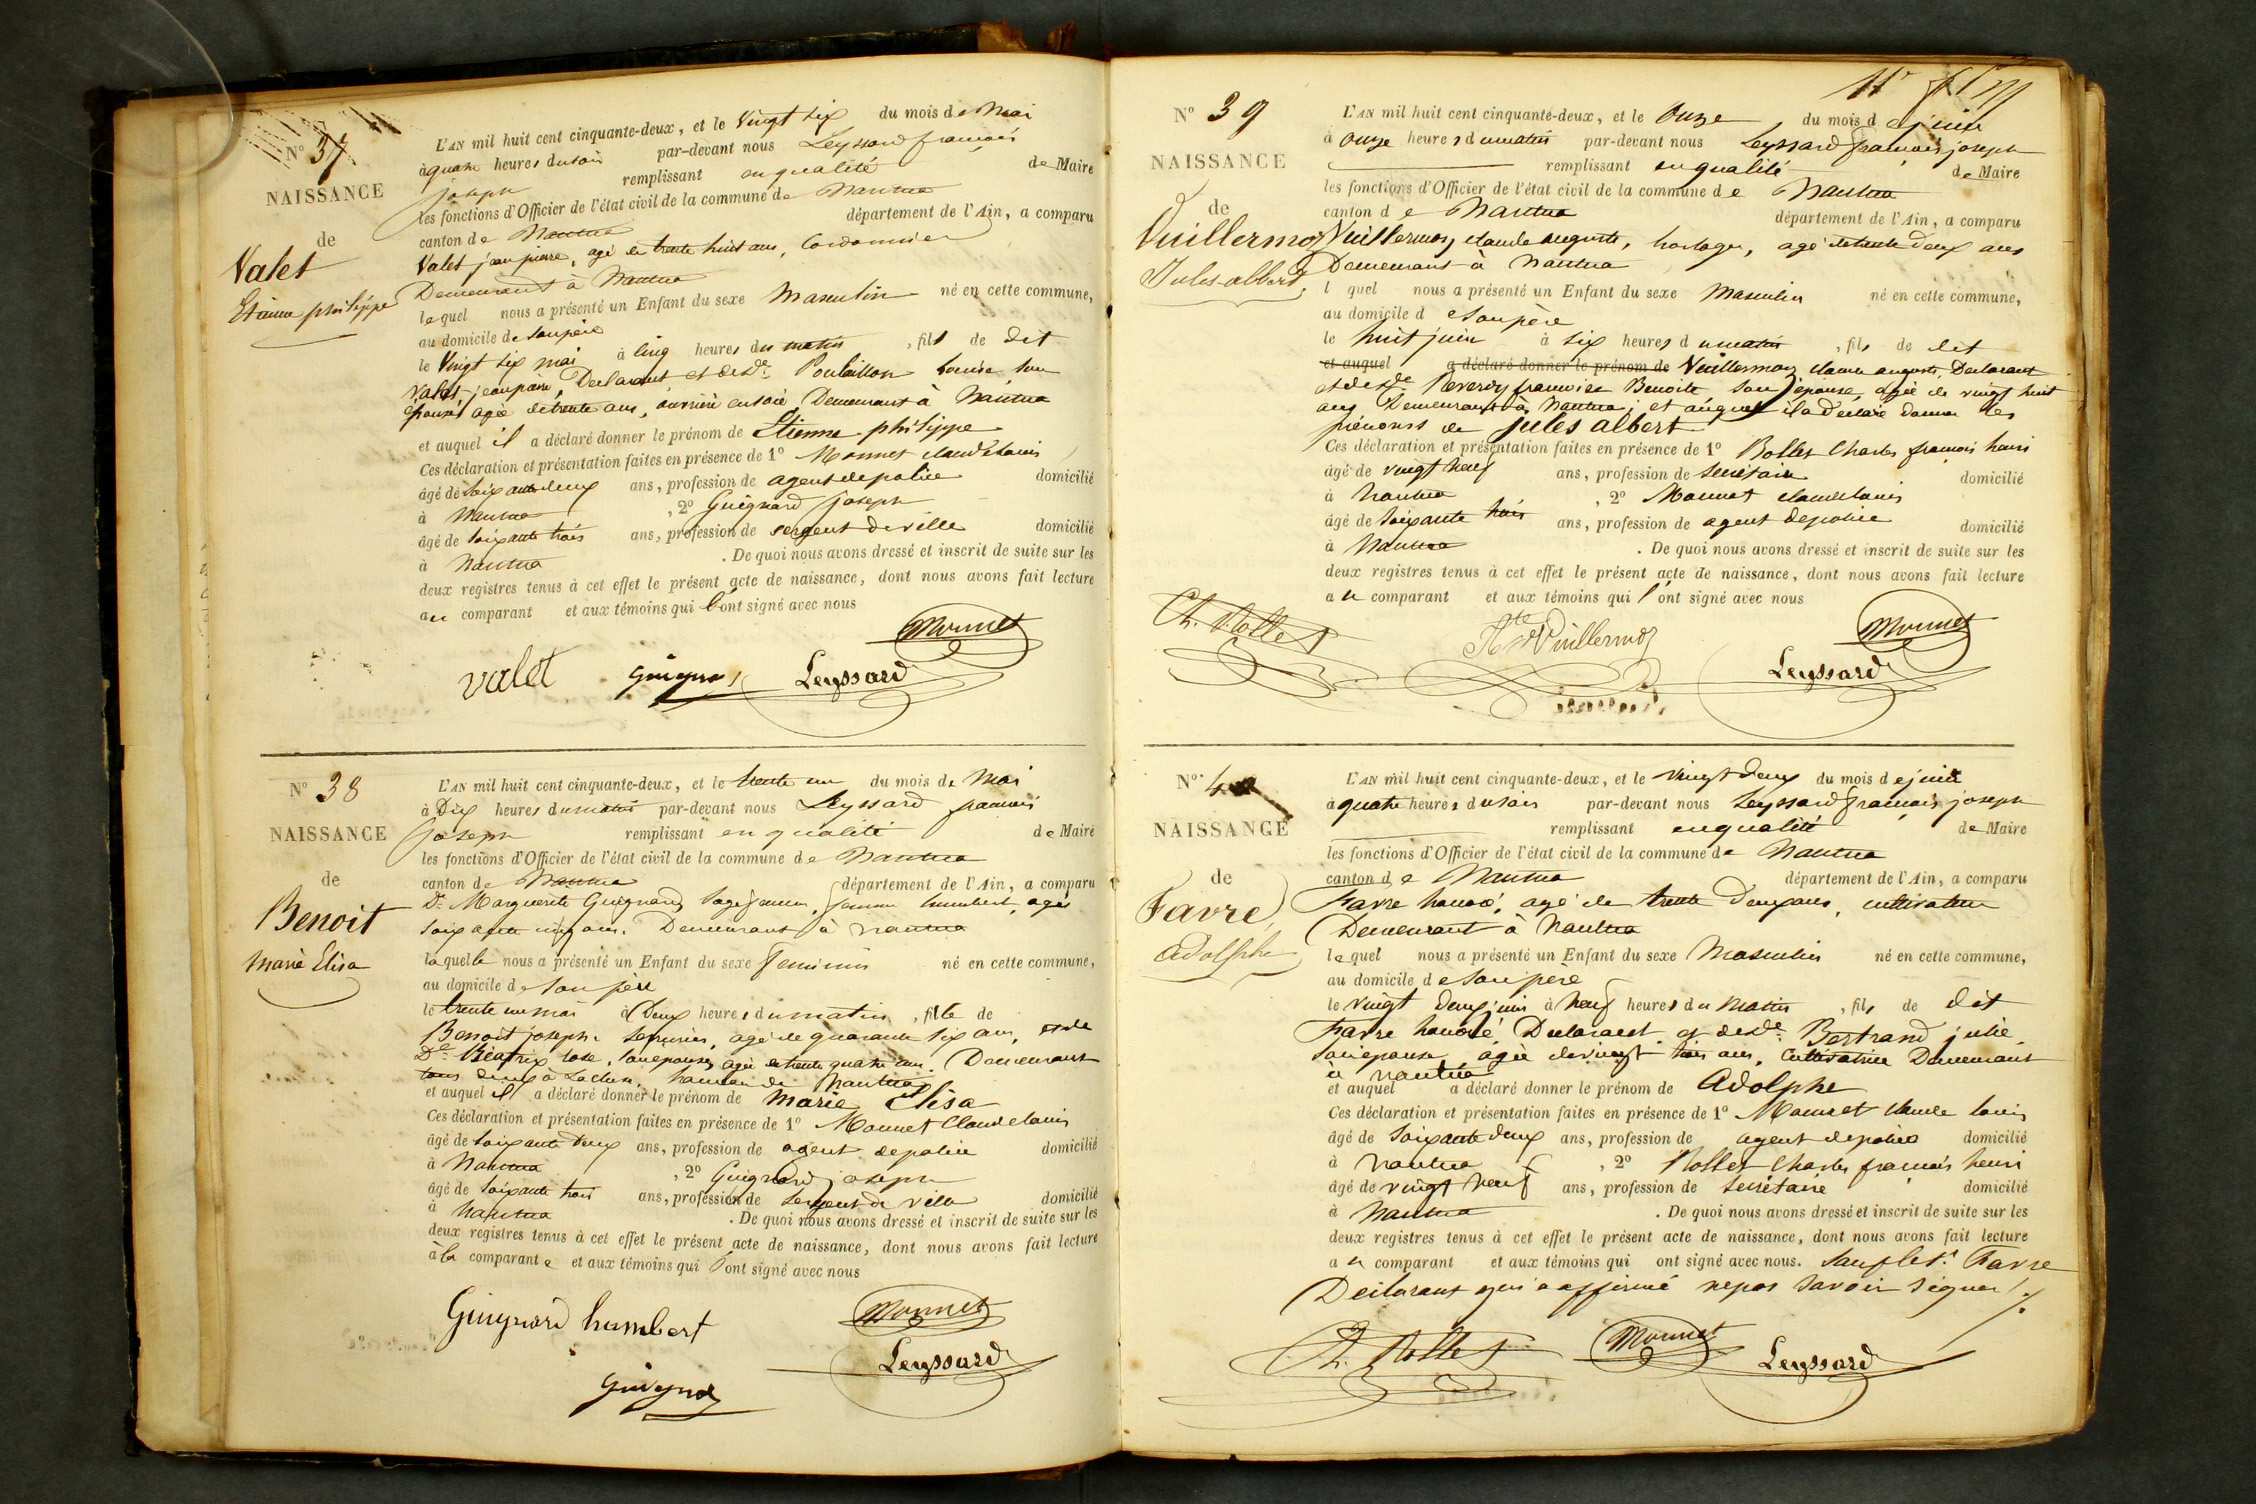 N° 37
NAISSANCE
de
Valet
Etienne philippe
L'AN mil huit cent cinquante-deux, et le Vingt six du mois de Mai
à quatre heures du soir par-devant nous Leyssard françois
joseph remplissant en qualité de Maire
les fonctions d'Officier de l'état civil de la commune de Nantua
canton de Nantua département de l'Ain, a comparu
Valet jean pierre, agé de trente huit ans, Cordonnier
Demeurant à Nantua
lequel nous a présenté un Enfant du sexe Masculin né en cette commune,
au domicile de son père
le Vingt six mai à cinq heures du matin, fils de dit
Valet, jean pierre, Declarant et de de De Louise, son
épouse agée de trente ans, ouvrière en soie Demeurant à Nantua
et auquel il a déclaré donner le prénom de Etienne philippe
Ces déclaration et présentation faites en présence de 1° Monnet claude Louis
âgé de soixante deux ans, profession de agent de police domicilié
à Nantua, 2° Guignard joseph
âgé de soixante trois ans, profession de sergent de ville domicilié
à Nantua. De quoi nous avons dressé et inscrit de suite sur les
deux registres tenus à cet effet le présent acte de naissance, dont nous avons fait lecture
au comparant et aux témoins qui l'ont signé avec nous
Monnet
valet Guignard Leyssard
N° 38
NAISSANCE
de
Benoit
Marie Elisa
L'AN mil huit cent cinquante-deux, et le trente un du mois de Mai
à Dix heures du matin par-devant nous Leyssard françois
joseph remplissant en qualité de Maire
les fonctions d'Officier de l'état civil de la commune de Nantua
canton de Nantua département de l'Ain, a comparu
De Marguerite Guignard, sage femme, femme humbert, agée
soixante ans. Demeurant à Nantua
laquelle nous a présenté un Enfant du sexe feminin né en cette commune,
au domicile de son père
le trente un mai à Deux heures du matin, fille de
Benoit joseph. serrurier, agé de quarante six ans, et de
De Béatrix rose, son epouse, agée de trente quatre ans. Demeurant
tous deux à hameau de Nantua
et auquel il a déclaré donner le prénom de Marie Elisa
Ces déclaration et présentation faites en présence de 1° Monnet Claude Louis
âgé de soixante deux ans, profession de agent de police domicilié
à Nantua, 2° Guignard joseph
âgé de soixante trois ans, profession de sergent de ville domicilié
à Nantua. De quoi nous avons dressé et inscrit de suite sur les
deux registres tenus à cet effet le présent acte de naissance, dont nous avons fait lecture
à la comparante et aux témoins qui l'ont signé avec nous
Guignard humbert Monnet
Leyssard
Guignard
N° 39
NAISSANCE
de
Vuillermoz
Jules albert
L'AN mil huit cent cinquante-deux, et le Onze du mois de juin
à onze heures du matin par-devant nous Leyssard françois joseph
remplissant en qualité de Maire
les fonctions d'Officier de l'état civil de la commune de Nantua
canton de Nantua département de l'Ain, a comparu
Vuillermoz, claude auguste, horloger, agé de trente deux ans
Demeurant à Nantua
l quel nous a présenté un Enfant du sexe Masculin né en cette commune,
au domicile de son père
le huit juin à six heures du matin, fils de dit
et auquel a déclaré donner le prénom de Vuillermoz claude auguste, Declarant
et de de De Reverdy françoise Benoite son épouse, agée de vingt huit
ans Demeurant à Nantua; et auquel il a declaré donner les
prénoms de jules albert
Ces déclaration et présentation faites en présence de 1° Rollet Charles françois henri
âgé de vingt neuf ans, profession de secrétaire domicilié
à Nantua, 2° Monnet claude Louis
âgé de soixante trois ans, profession de agent de police domicilié
à Nantua. De quoi nous avons dressé et inscrit de suite sur les
deux registres tenus à cet effet le présent acte de naissance, dont nous avons fait lecture
au comparant et aux témoins qui l'ont signé avec nous
Ch. Rollet Ate Vuillermoz Monnet
Leyssard
N° 40
NAISSANCE
de
Favre
Adolphe
L'AN mil huit cent cinquante-deux, et le vingt deux du mois de juin
à quatre heures du soir par-devant nous Leyssard françois joseph
remplissant en qualité de Maire
les fonctions d'Officier de l'état civil de la commune de Nantua
canton de Nantua département de l'Ain, a comparu
Favre honoré, agé de trente deux ans, cultivateur
Demeurant à Nantua
lequel nous a présenté un Enfant du sexe Masculin né en cette commune,
au domicile de son père
le vingt deux juin à neuf heures du Matin, fils de dit
Favre honoré, Declarant, et de de De Bertrand julie
son epouse agée de vingt trois ans, Cultivatrice Demeurant
à Nantua
et auquel a déclaré donner le prénom de Adolphe
Ces déclaration et présentation faites en présence de 1° Monnet claude Louis
âgé de soixante deux ans, profession de agent de police domicilié
à Nantua, 2° Rollet Charles françois henri
âgé de vingt neuf ans, profession de secrétaire domicilié
à Nantua. De quoi nous avons dressé et inscrit de suite sur les
deux registres tenus à cet effet le présent acte de naissance, dont nous avons fait lecture
au comparant et aux témoins qui ont signé avec nous. sauf le st Favre
Declarant qui a affirmé ne pas savoir signer
Ch. Rollet Monnet Leyssard